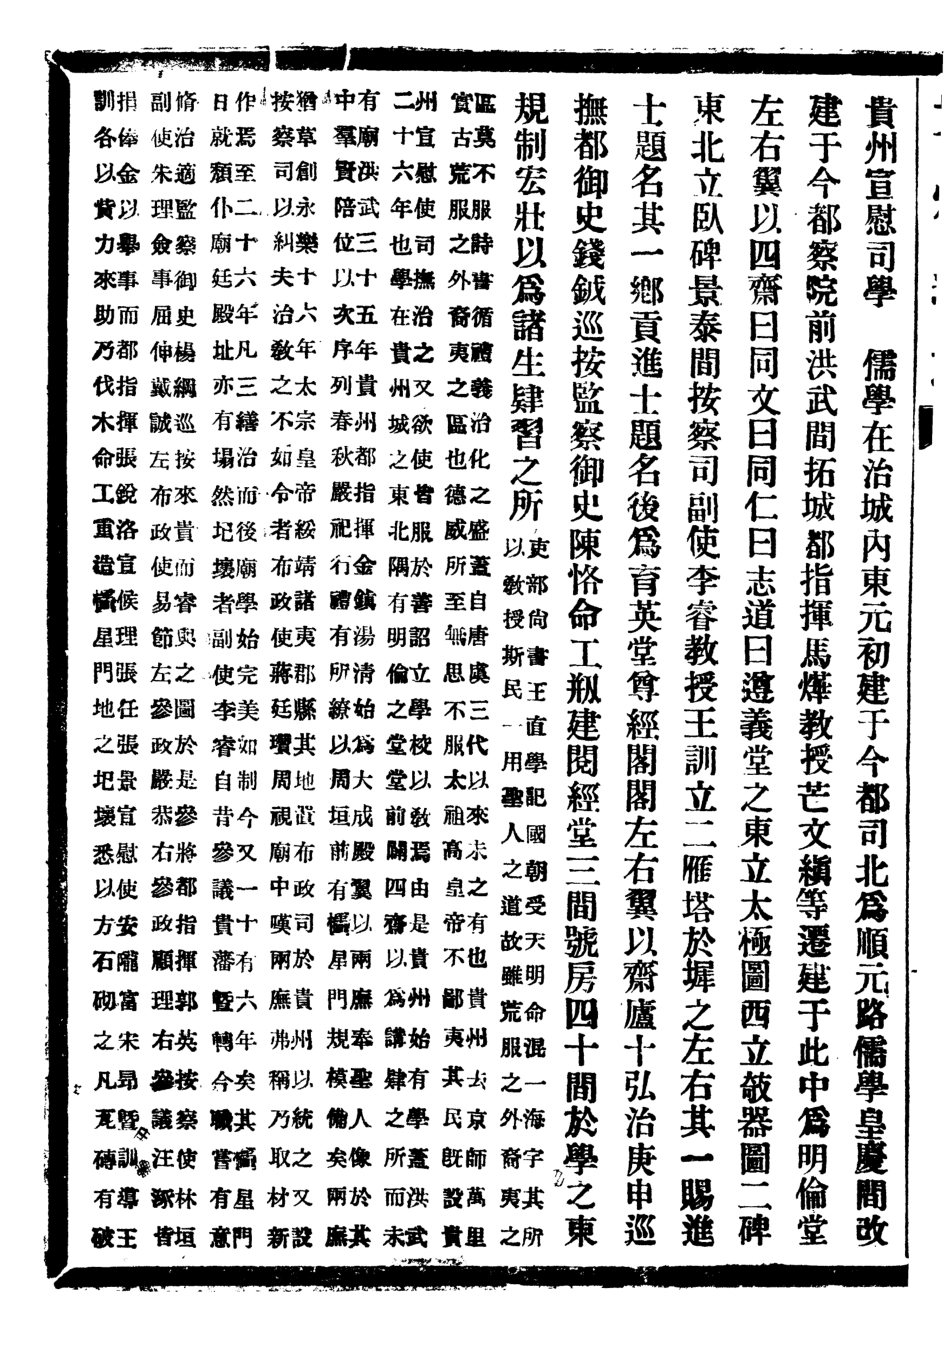 貴州宣慰司學　儒學在治城内東元初建于今都司北爲順元路儒學皇慶間改
建于今都察院前洪武間拓城都指揮馬燁教授芒文縝等遷建于此中爲明倫堂
左右翼以四齋曰同文曰同仁曰志道曰遵義堂之東立太極圖西立攲器圖二碑
東北立臥碑景泰間按察司副使李睿教授王訓立二雁塔於墀之左右其一賜進
士題名其一鄉貢進士題名後爲育英堂尊經閣閣左右翼以齋廬十弘治庚申巡
撫都御史錢鉞巡按監察御史陳恪命工剏建閱經堂三間號房四十間於學之東
規制宏壯以爲諸生肄習之所
吏部尚書王直學記國朝受天明命混一海宇其所
以敎授斯民一用聖人之道故雖荒服之外裔夷之
區莫不服詩書循禮義治化之盛蓋自唐虞三代以來未之有也貴州去京師萬里
實古荒服之外裔夷之區也德威所至無思不服太祖高皇帝不鄙夷其民旣設貴
州宣慰使司撫治之又欲使皆服於善詔立學校以敎焉由是貴州始有學蓋洪武
二十六年也學在貴州城之東北隅有明倫之堂堂前闢四齋以爲講肄之所而未
有廟洪武三十五年貴州都指揮金鎮湯清始爲大成殿翼以兩廡奉聖人像於其
中羣賢陪位以次序列春秋嚴祀行禮有所繚以周垣前有櫺星門規模備矣兩廡
猶草創永樂十六年太宗皇帝綏靖諸夷郡縣其地置布政司於貴州以統之又設
按察司以糾夫治敎之不如令者布政使蔣廷瓚周視廟中嘆兩廡弗稱乃取材新
作焉至二十六年凡三繕治而後廟學始完美如制今又一十有六年矣其櫺星門
日就頹仆廟廷殿址亦有塲然圮壞者副使李睿自昔參議貴藩曁轉今職嘗有意
脩治適監察御史楊綱巡按來貴而睿與之圖於是參將都指揮郭英按察使林垣
副使朱理僉事屈伸戴誠左布政使易節左參政嚴恭右參政顧理右參議汪涿皆
捐俸金以舉事而都指揮張銳洛宣候理張任張景宣慰使安隴富宋昂曁訓導王
訓各以貲力來助乃伐木命工重造櫺星門地之圮壞悉以方石砌之凡瓦磚有破